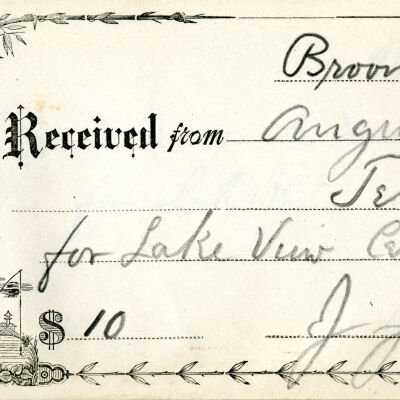 Broo
Received from Augu
Te
for Lake View Ce
$ 10 J